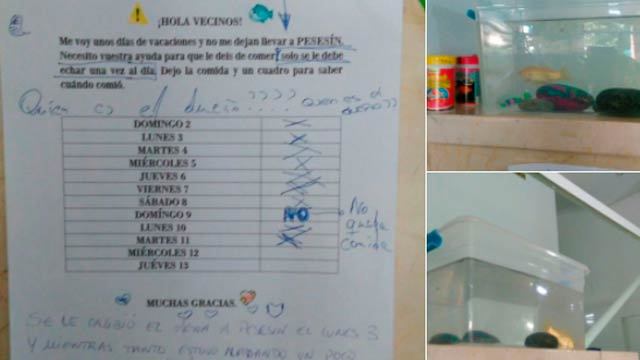 ¡HOLA VECINOS!
Me voy unos días de vacaciones y no me dejan llevar a PESESÍN.
Necesito vuestra ayuda para que le deis de comer, solo se le debe
echar una vez al día. Dejo la comida y un cuadro para saber
cuándo comió.
Quien es el dueño????....
Quien es el dueño??
DOMINGO 2 X
LUNES 3 X
MARTES 4 X
MIÉRCOLES 5 X
JUEVES 6 X
VIERNES 7 X
SÁBADO 8 X
DOMINGO 9 NO
No queda comida
LUNES 10 X
MARTES 11 X
MIÉRCOLES 12
JUÉVES 13
MUCHAS GRACIAS.
SE LE CAMBIÓ EL AGUA A PESESIN EL LUNES 3
Y MIENTRAS TANTO ESTUVO NADANDO UN POCO